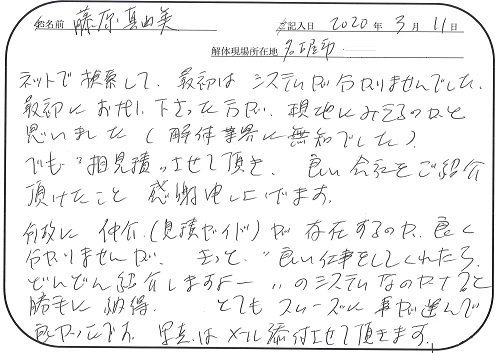 お名前 藤原真由美 ご記入日 2020 年 3 月 11 日
解体現場所在地 名古屋市
ネットで検索して、最初はシステムが分かりませんでした。
最初にお伺い下さった方が、現地にみえるのかと
思いました（解体業界に無知でした）。
でも"相見積"させて頂き、良い会社をご紹介
頂けたこと 感謝申し上げます。
何故に 仲介（見積ガイド）が 存在するのか、良く
分かりませんが、きっと、"良い仕事をしてくれたら、
どんどん紹介しますよー"のシステムなのかナ？と
勝手に納得。 とてもスムーズに事が進んで
良かったです。写真はメール添付させて頂きます。